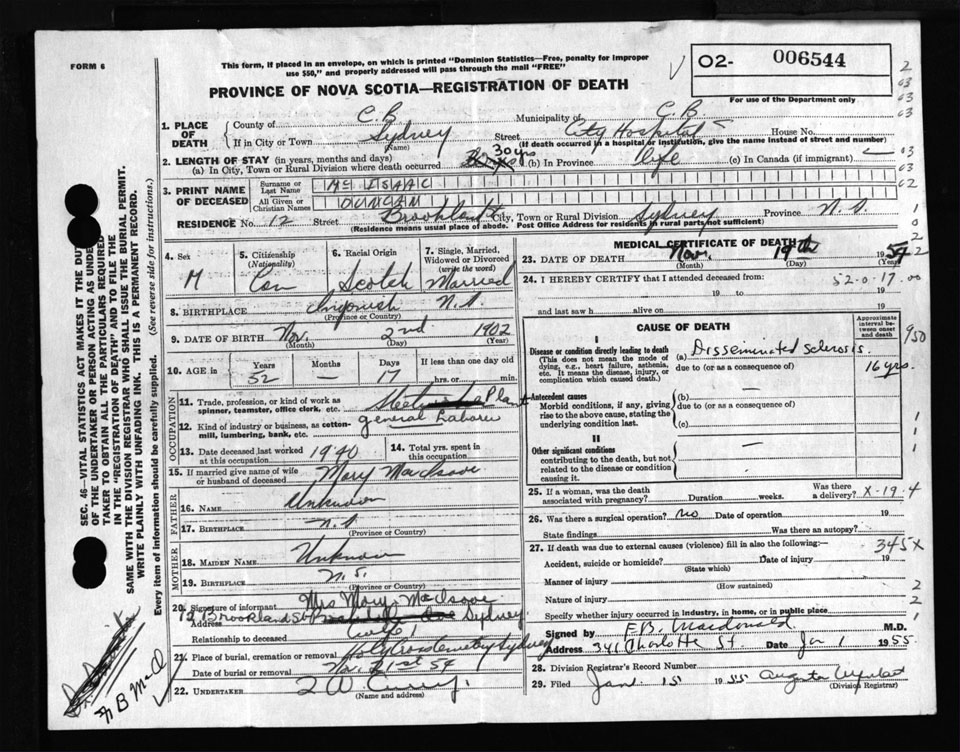 FORM 6
This form, if placed in an envelope, on which is printed "Dominion Statistics—Free, penalty for improper
use $50," and properly addressed will pass through the mail "FREE"
O2- 006544
For use of the Department only
PROVINCE OF NOVA SCOTIA—REGISTRATION OF DEATH
1. PLACE OF DEATH
County of C.B. Municipality of C.B.
If in City or Town Sydney (Name) Street City Hospital House No.
(If death occurred in a hospital or institution, give the name instead of street and number)
2. LENGTH OF STAY (in years, months and days)
(a) In City, Town or Rural Division where death occurred 30 yrs (b) In Province life (c) In Canada (if immigrant)
3. PRINT NAME OF DECEASED
Surname or Last Name Mc ISAAC
All Given or Christian Names DUNCAN
RESIDENCE No. 12 Street Brookland St City, Town or Rural Division Sydney Province N.S.
(Residence means usual place of abode. Post Office Address for residents in rural parts not sufficient)
4. Sex M
5. Citizenship (Nationality) Can
6. Racial Origin Scotch
7. Single, Married, Widowed or Divorced (write the word) Married
8. BIRTHPLACE Ingonish N.S.
(Province or Country)
9. DATE OF BIRTH Nov. 2nd 1902
(Month) (Day) (Year)
10. AGE in Years 52 Months — Days 17 If less than one day old hrs. or min.
OCCUPATION
11. Trade, profession, or kind of work as spinner, teamster, office clerk, etc. Plant
12. Kind of industry or business, as cotton-mill, lumbering, bank, etc. general Labour
13. Date deceased last worked at this occupation 1940
14. Total yrs. spent in this occupation
15. If married give name of wife or husband of deceased Mary MacIsaac
FATHER
16. NAME Unknown
17. BIRTHPLACE N.S.
(Province or Country)
MOTHER
18. MAIDEN NAME Unknown
19. BIRTHPLACE N.S.
(Province or Country)
20. Signature of informant Mrs Mary MacIsaac
Address 12 Brookland St Sydney
Relationship to deceased Wife
21. Place of burial, cremation or removal Holy Cross Cemetery Sydney
Date of burial or removal Nov. 21st 54
22. UNDERTAKER
(Name and address)
MEDICAL CERTIFICATE OF DEATH
23. DATE OF DEATH Nov. 19th 1954
(Month) (Day) (Year)
24. I HEREBY CERTIFY that I attended deceased from:
52-0-17.00
19 to 19
and last saw h alive on 19
CAUSE OF DEATH
Approximate interval between onset and death
I
Disease or condition directly leading to death (a) Disseminated sclerosis. 16 yrs.
(This does not mean the mode of dying, e.g., heart failure, asthenia, etc. It means the disease, injury, or complication which caused death.)
due to (or as a consequence of)
Antecedent causes (b) —
Morbid conditions, if any, giving rise to the above cause, stating the underlying condition last.
due to (or as a consequence of)
(c)
II
Other significant conditions —
contributing to the death, but not related to the disease or condition causing it.
25. If a woman, was the death associated with pregnancy? Duration weeks. Was there a delivery? X-19-4
26. Was there a surgical operation? no Date of operation 19
State findings Was there an autopsy?
27. If death was due to external causes (violence) fill in also the following:— 345X
Accident, suicide or homicide? Date of injury 19
(State which)
Manner of injury
(How sustained)
Nature of injury
Specify whether injury occurred in industry, in home, or in public place
Signed by F.B. Macdonald M.D.
Address 341 Charlotte St. Date Jan 1 1955
28. Division Registrar's Record Number
29. Filed Jan. 15 1955 Augusta
(Division Registrar)
SEC. 46—VITAL STATISTICS ACT MAKES IT THE DUTY
OF THE UNDERTAKER OR PERSON ACTING AS UNDERTAKER
TO OBTAIN ALL THE PARTICULARS REQUIRED
IN THE "REGISTRATION OF DEATH" AND TO FILE THE
SAME WITH THE DIVISION REGISTRAR WHO SHALL ISSUE THE BURIAL PERMIT.
WRITE PLAINLY WITH UNFADING INK. THIS IS A PERMANENT RECORD.
Every item of information should be carefully supplied. (See reverse side for instructions.)